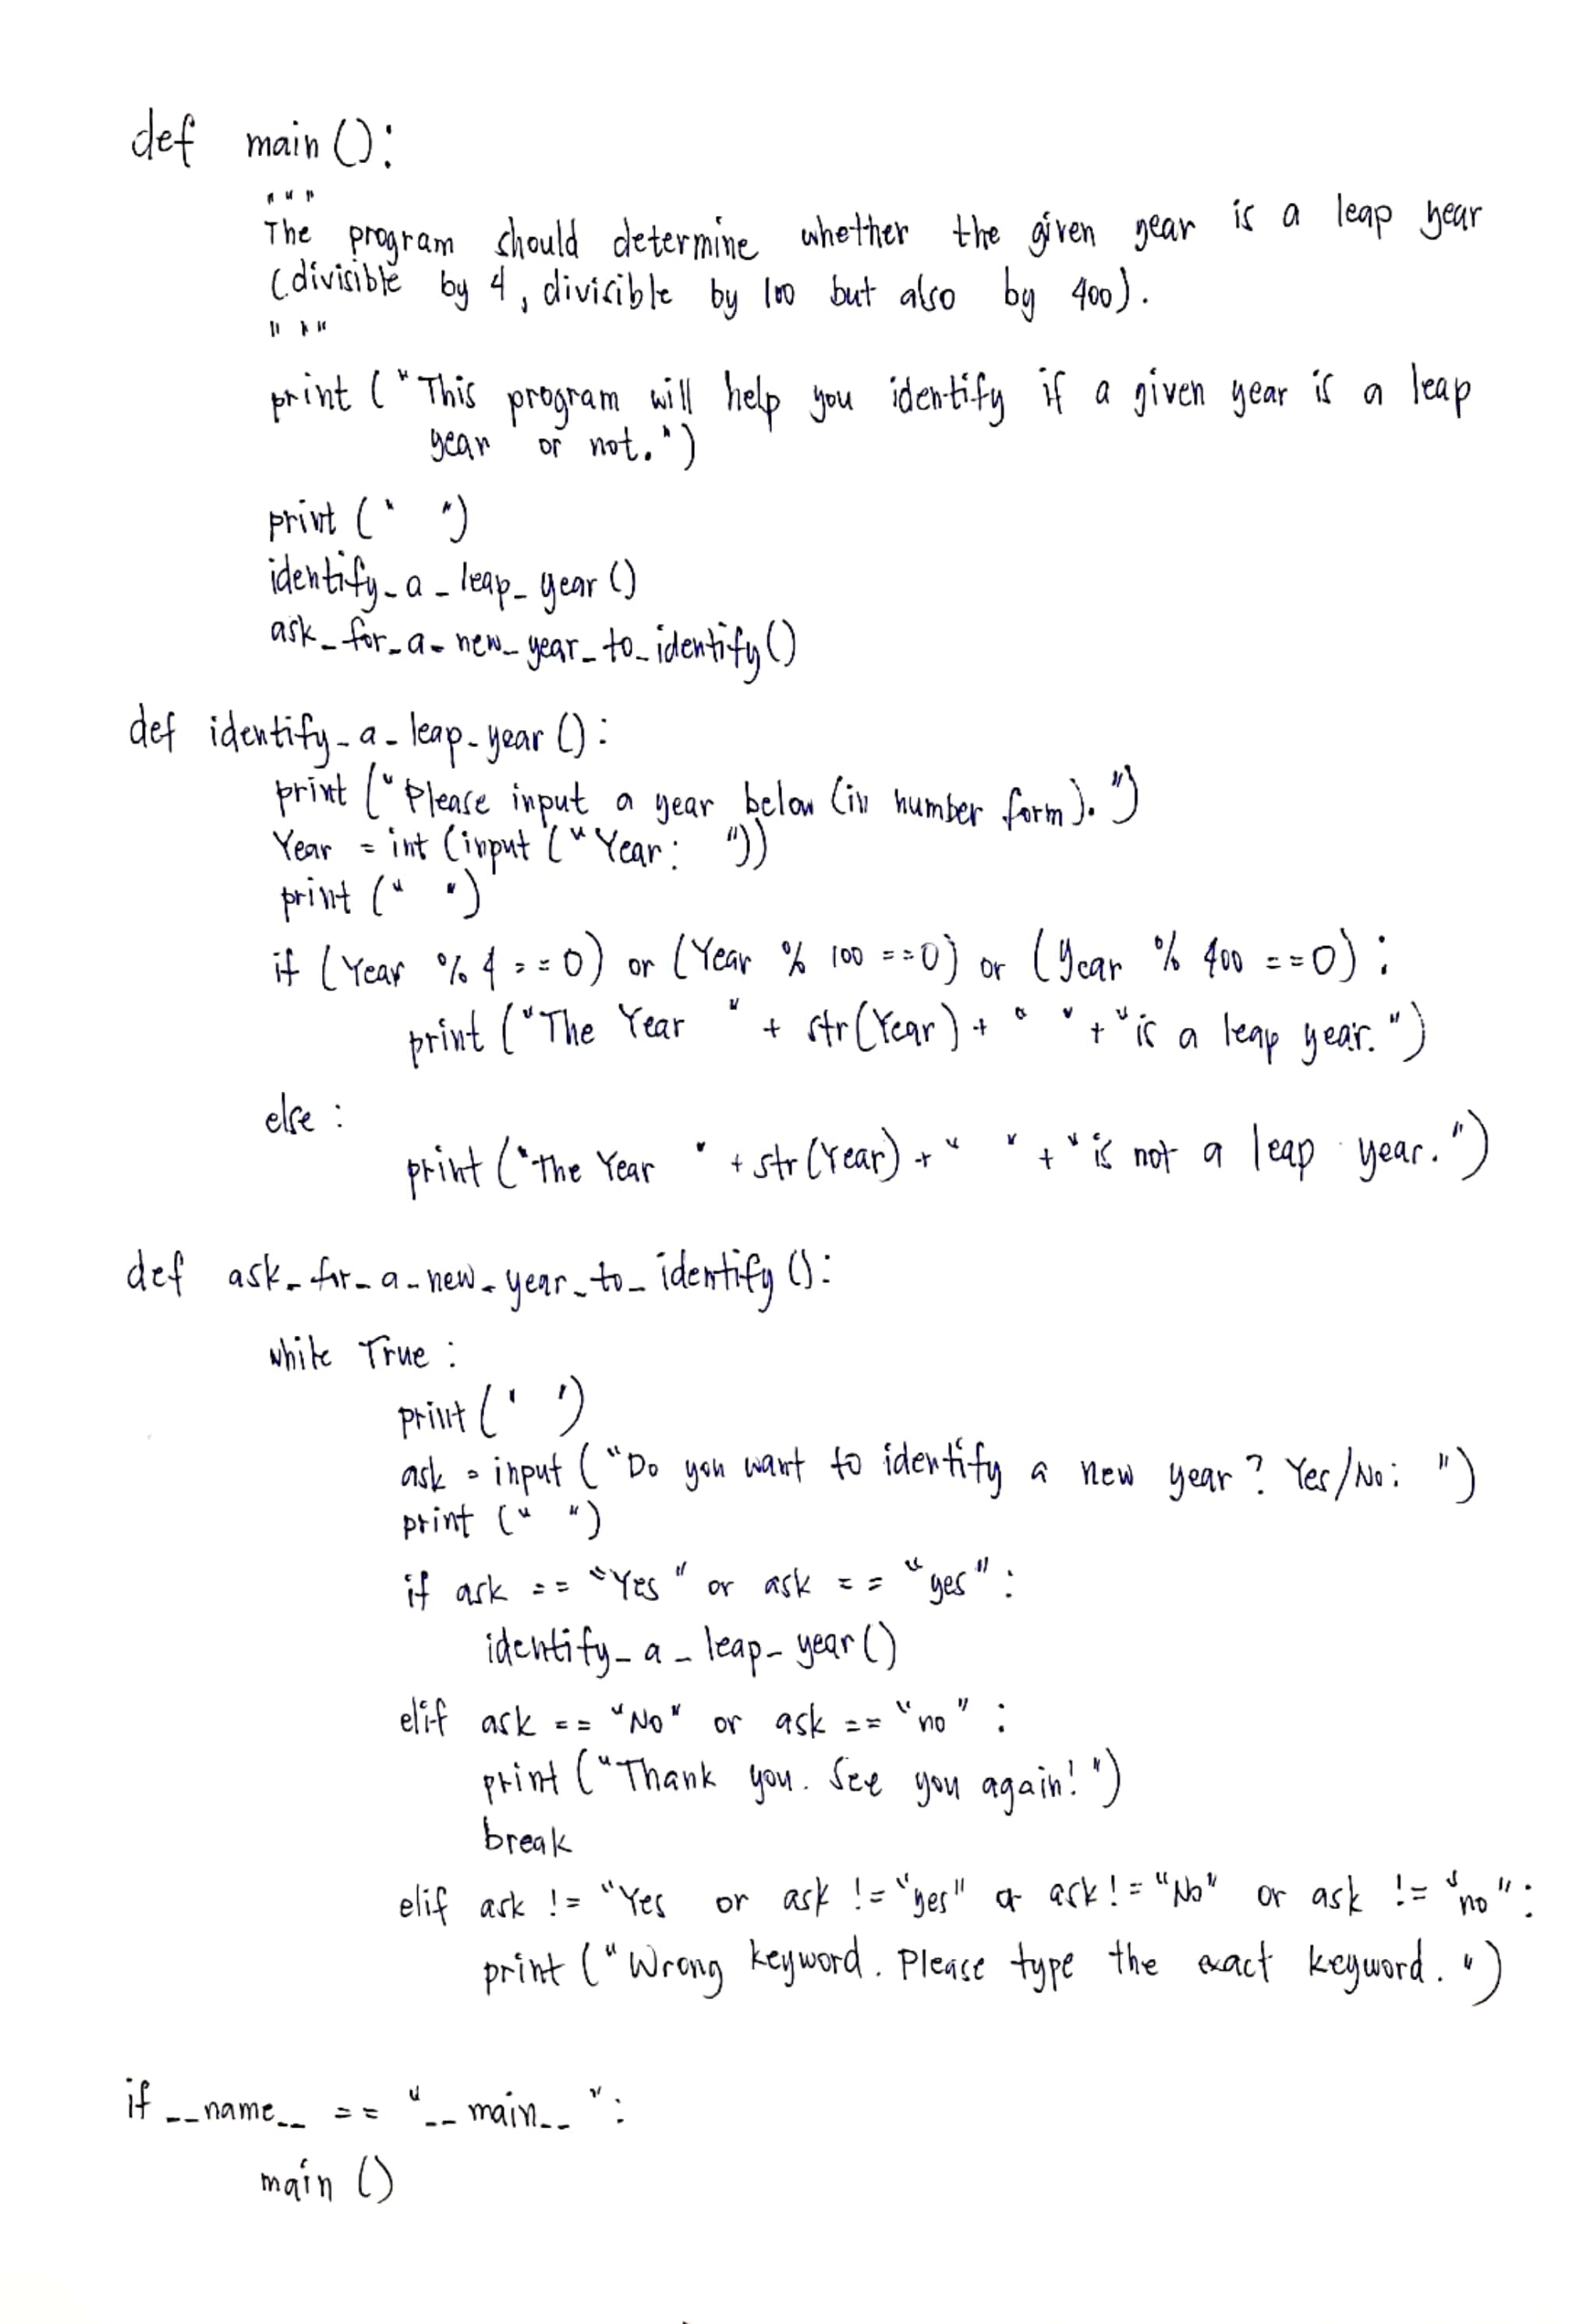 def main():
"""
The program should determine whether the given year is a leap year
(divisible by 4, divisible by 100 but also by 400).
"""
print ("This program will help you identify if a given year is a leap
year or not.")
print (" ")
identify_a_leap_year()
ask_for_a_new_year_to_identify()
def identify_a_leap_year():
print ("Please input a year below (in number form).")
Year = int (input ("Year: "))
print (" ")
if (Year % 4 == 0) or (Year % 100 == 0) or (Year % 400 == 0):
print ("The Year " + str(Year) + " " + "is a leap year.")
else:
print ("The Year " + str(Year) + " " + "is not a leap year.")
def ask_for_a_new_year_to_identify():
while True:
print (' ')
ask = input ("Do you want to identify a new year? Yes/No: ")
print (" ")
if ask == "Yes" or ask == "yes":
identify_a_leap_year()
elif ask == "No" or ask == "no":
print ("Thank you. See you again!")
break
elif ask != "Yes or ask != "yes" or ask != "No" or ask != "no":
print ("Wrong keyword. Please type the exact keyword.")
if __name__ == "__main__":
main ()